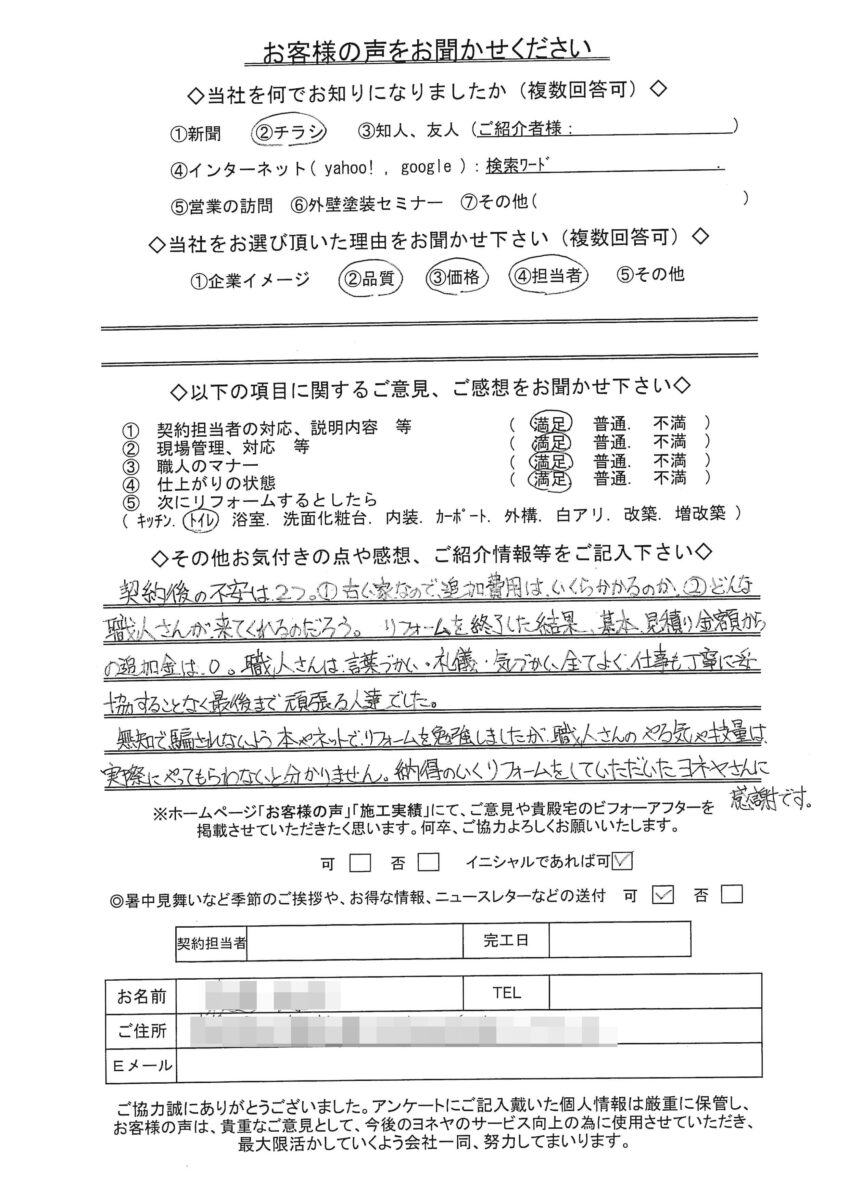 お客様の声をお聞かせください
◇当社を何でお知りになりましたか（複数回答可）◇
①新聞 ②チラシ ③知人、友人（ご紹介者様： ）
④インターネット（ yahoo! , google ）：検索ﾜｰﾄﾞ .
⑤営業の訪問 ⑥外壁塗装セミナー ⑦その他（ ）
◇当社をお選び頂いた理由をお聞かせ下さい（複数回答可）◇
①企業イメージ ②品質 ③価格 ④担当者 ⑤その他
◇以下の項目に関するご意見、ご感想をお聞かせ下さい◇
① 契約担当者の対応、説明内容 等 （ 満足 普通. 不満 ）
② 現場管理、対応 等 （ 満足 普通. 不満 ）
③ 職人のマナー （ 満足 普通. 不満 ）
④ 仕上がりの状態 （ 満足 普通. 不満 ）
⑤ 次にリフォームするとしたら
（ ｷｯﾁﾝ. ﾄｲﾚ 浴室. 洗面化粧台. 内装. ｶｰﾎﾟｰﾄ. 外構. 白アリ. 改築. 増改築 ）
◇その他お気付きの点や感想、ご紹介情報等をご記入下さい◇
契約後の不安は2つ。①古い家なので、追加費用は、いくらかかるのか、②どんな
職人さんが来てくれるのだろう。 リフォームを終了した結果、基本、見積り金額から
の追加金は、0。職人さんは、言葉づかい・礼儀・気づかい、全てよく、仕事も丁寧に妥
協することなく最後まで頑張る人達でした。
無知で騙されないよう本やネットで、リフォームを勉強しましたが、職人さんのやる気や技量は、
実際にやってもらわないと分かりません。納得のいくリフォームをしていただいたヨネヤさんに
感謝です。
※ホームページ「お客様の声」「施工実績」にて、ご意見や貴殿宅のビフォーアフターを
掲載させていただきたく思います。何卒、ご協力よろしくお願いいたします。
可 □ 否 □ イニシャルであれば可☑
◎暑中見舞いなど季節のご挨拶や、お得な情報、ニュースレターなどの送付 可 ☑ 否 □
契約担当者 完工日
お名前 TEL
ご住所
Eメール
ご協力誠にありがとうございました。アンケートにご記入戴いた個人情報は厳重に保管し、
お客様の声は、貴重なご意見として、今後のヨネヤのサービス向上の為に使用させていただき、
最大限活かしていくよう会社一同、努力してまいります。